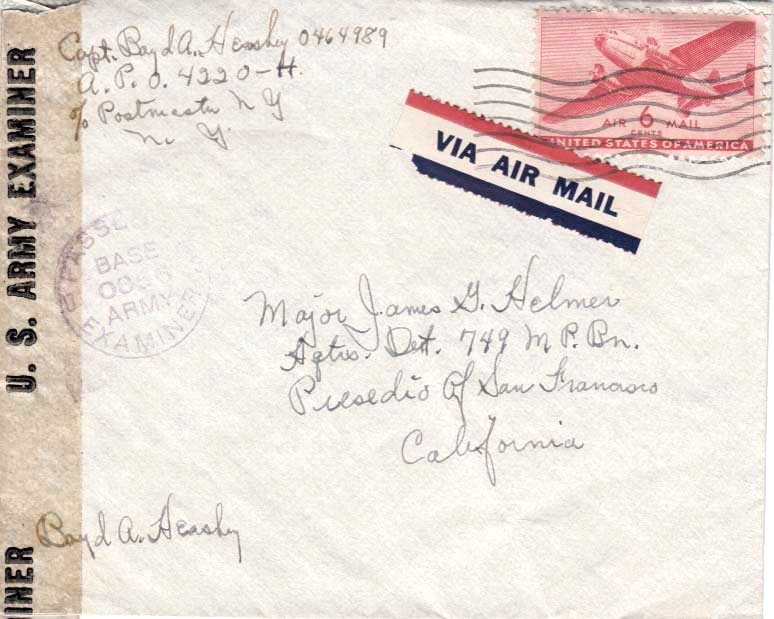 Capt. Boyd A. Hershey 0464989
A. P. O. 4220-H.
% Postmaster N Y
N. Y.
AIR 6 MAIL
CENTS
UNITED STATES OF AMERICA
VIA AIR MAIL
U. S. ARMY EXAMINER
INER
PASSED
BASE
ARMY
EXAMINER
Major James G. Helmer
Hqtrs. Det. 749 M P. Bn.
Presedio Of San Francisco
California
Boyd A. Hershey